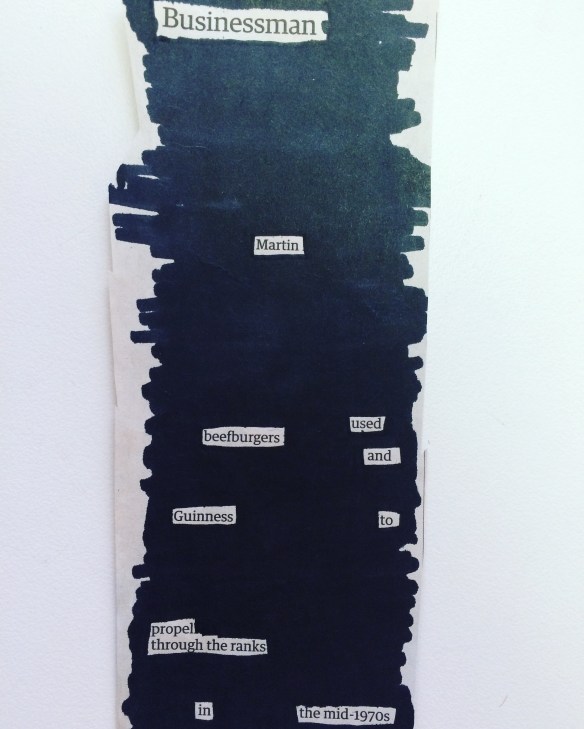 Businessman
Martin
used
beefburgers
and
Guinness to
propel
through the ranks
in the mid-1970s